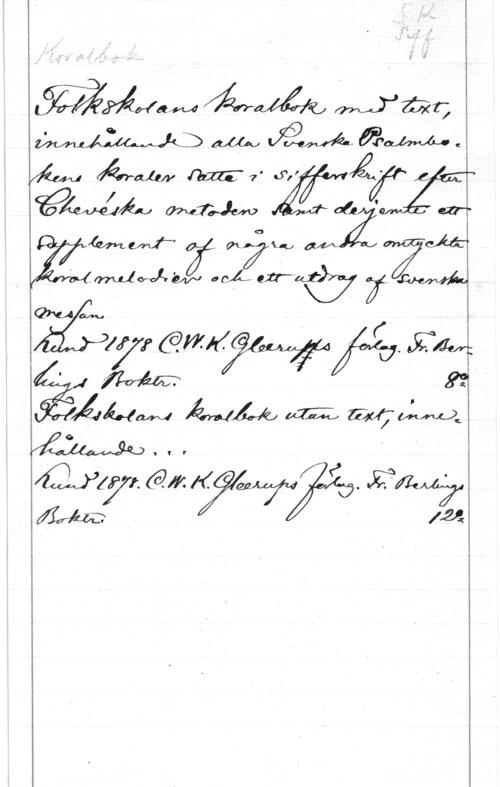 Koralbok
Folkskolans koralbok med text,
innehållande alla Svenska Psalmbo-
kens koraler satta i sifferskrift efter
Chevéska metoden samt derjemte ett
supplement af några andra omtyckta
koralmelodier och ett utdrag af svenska
messan
Lund 1878 C.W.K. Gleerups förlag. Fr. Ber-
lings Boktr. 8º
Folkskolans koralbok utan text, inne-
hållande...
Lund 1878. C.W.K. Gleerups förlag. Fr. Berlings
Boktr. 12º